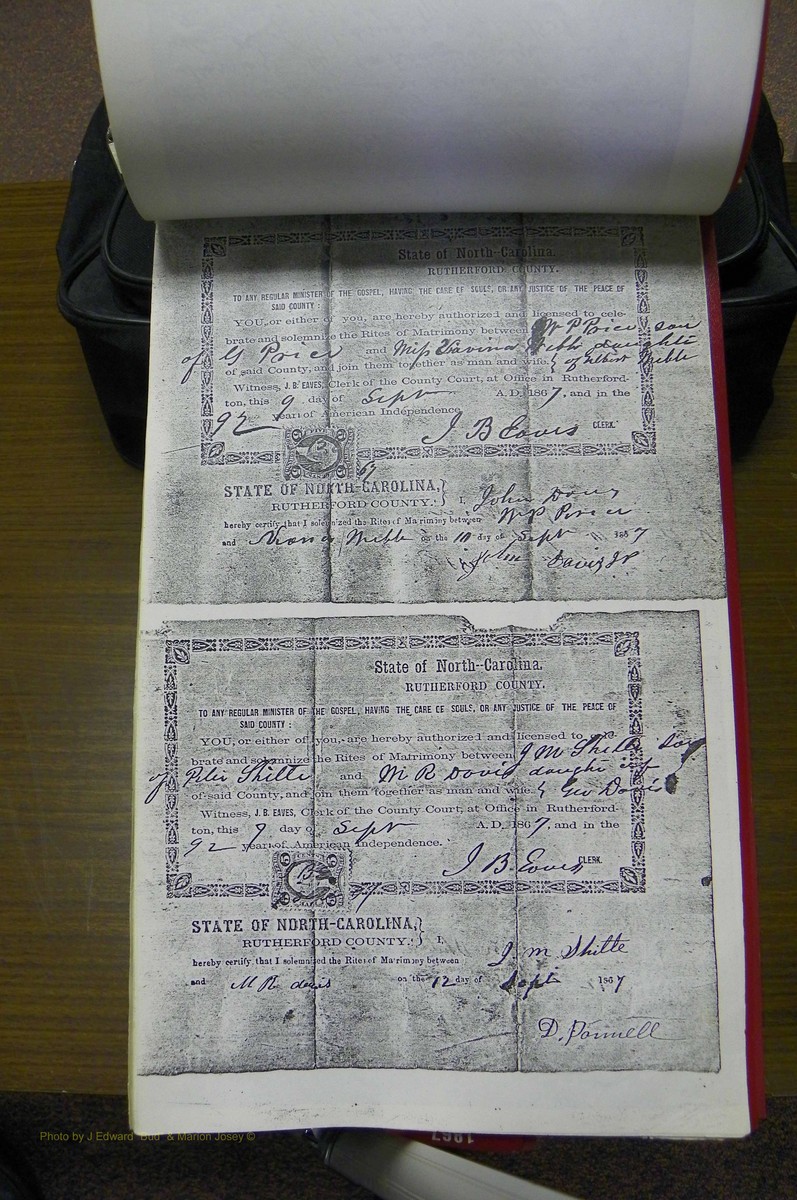 State of North-Carolina.
RUTHERFORD COUNTY.
TO ANY REGULAR MINISTER OF THE GOSPEL, HAVING THE CARE OF SOULS, OR ANY JUSTICE OF THE PEACE OF
SAID COUNTY :
YOU, or either of you, are hereby authorized and licensed to cele-
brate and solemnize the Rites of Matrimony between W P Price son
of G Price and Miss Webb daughter
of said County, and join them together as man and wife. } of Albert Webb
Witness, J. B. EAVES, Clerk of the County Court, at Office in Rutherford-
ton, this 9 day of Sept A. D. 1867, and in the
92 year of American Independence.
J B Eaves CLERK.
67
STATE OF NORTH-CAROLINA, }
RUTHERFORD COUNTY. } I, John Davis
hereby certify that I solemnized the Rites of Matrimony between W P Price
and Webb on the 10 day of Sept 1867
John Davis JP
State of North-Carolina.
RUTHERFORD COUNTY.
TO ANY REGULAR MINISTER OF THE GOSPEL, HAVING THE CARE OF SOULS, OR ANY JUSTICE OF THE PEACE OF
SAID COUNTY :
YOU, or either of you, are hereby authorized and licensed to cele-
brate and solemnize the Rites of Matrimony between J M Shitle son
of Peter Shitle and M R Davis daughter of
of said County, and join them together as man and wife. } Davis
Witness, J. B. EAVES, Clerk of the County Court, at Office in Rutherford-
ton, this 9 day of Sept A. D. 1867, and in the
92 year of American Independence.
J B Eaves CLERK.
STATE OF NORTH-CAROLINA, }
RUTHERFORD COUNTY. } I,
hereby certify that I solemnized the Rites of Matrimony between J M Shitle
and M R davis on the 12 day of Sept 1867
D. Pannell
1867
Photo by J Edward "Bud" & Marion Josey ©